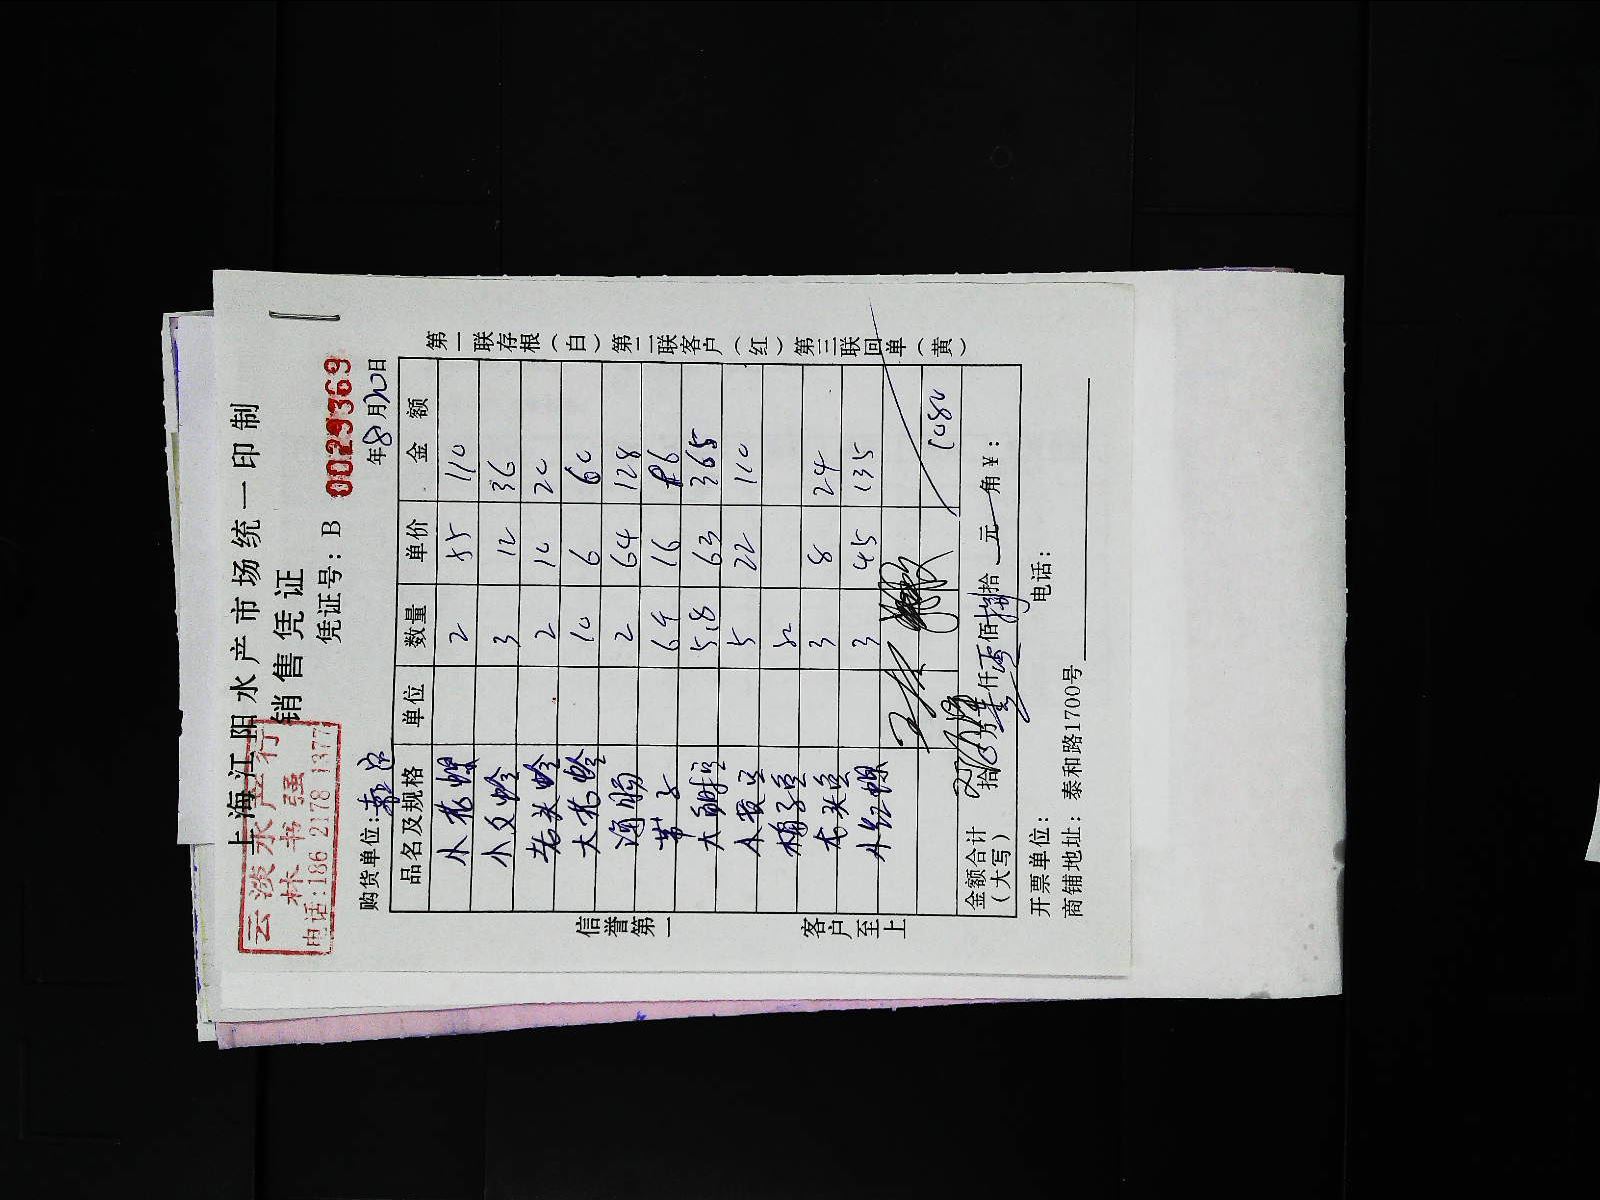 上海江阳水产市场统一印制
销售凭证
云淡水产行
林书强
电话:186 2178 1377
凭证号：B 0029369
购货单位:
年8月20日
品名及规格 单位 数量 单价 金额
小花螺 2 55 110
小文蛤 3 12 36
老头蛤 2 10 20
大花蛤 10 6 60
海肠 2 64 128
带子 6 16
大 5.8 63 365
5 22 110
3 8 24
小红螺 3 45 135
1080
金额合计
（大写）
拾 万 仟 佰 拾 元 角 ¥：
开票单位： 电话：
商铺地址：泰和路1700号
第一联存根（白）第二联客户（红）第三联回单（黄）
信誉第一
客户至上